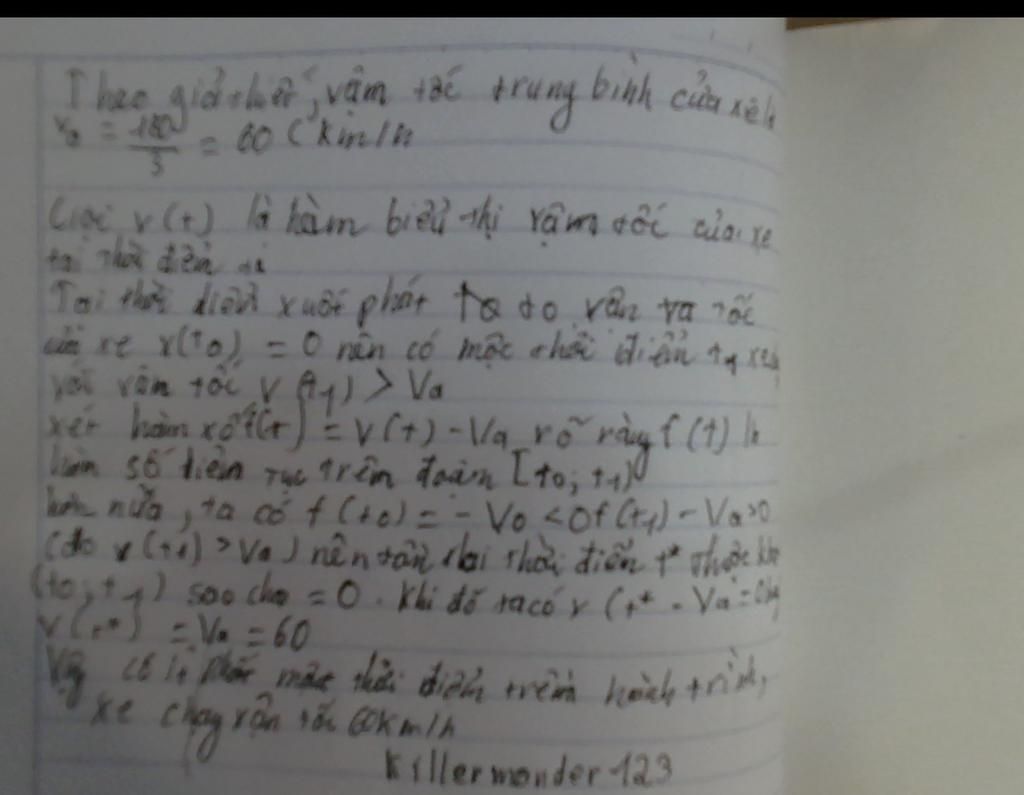 Theo giả thiết, vậm tốc trung bình của xe là
va = 180/3 = 60 (km/h
Gọi v(t) là hàm biểu thị vậm tốc của xe
tại thời điểm
Tại thời điểm xuất phát to vân va tốc
của xe v(to) = 0 nên có một thời điểm t1 xe
với vân tốc v(t1) > Va
xét hàm xố f(t) = v(t) - Va rõ ràng f(t) là
hàm số liên tục trêm đoạn [to; t1)
hơn nữa, ta có f(to) = - Vo < 0 f(t1) - Va > 0
(do v(t1) > Va) nên tồn tại thời điểm t* thuộc
(to; t1) sao cho = 0. Khi đó ta có v(t* - Va = 0 hay
v(t*) = Va = 60
Vậy có ít một thời điểm trêm hành trình,
xe chạy vận tốc 60km/h
Killermonder 123